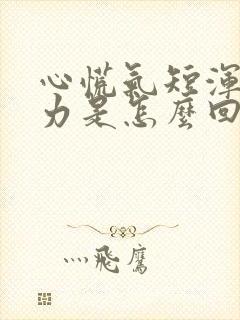 心慌氣短渾
力是怎麼回
灬飛鷹